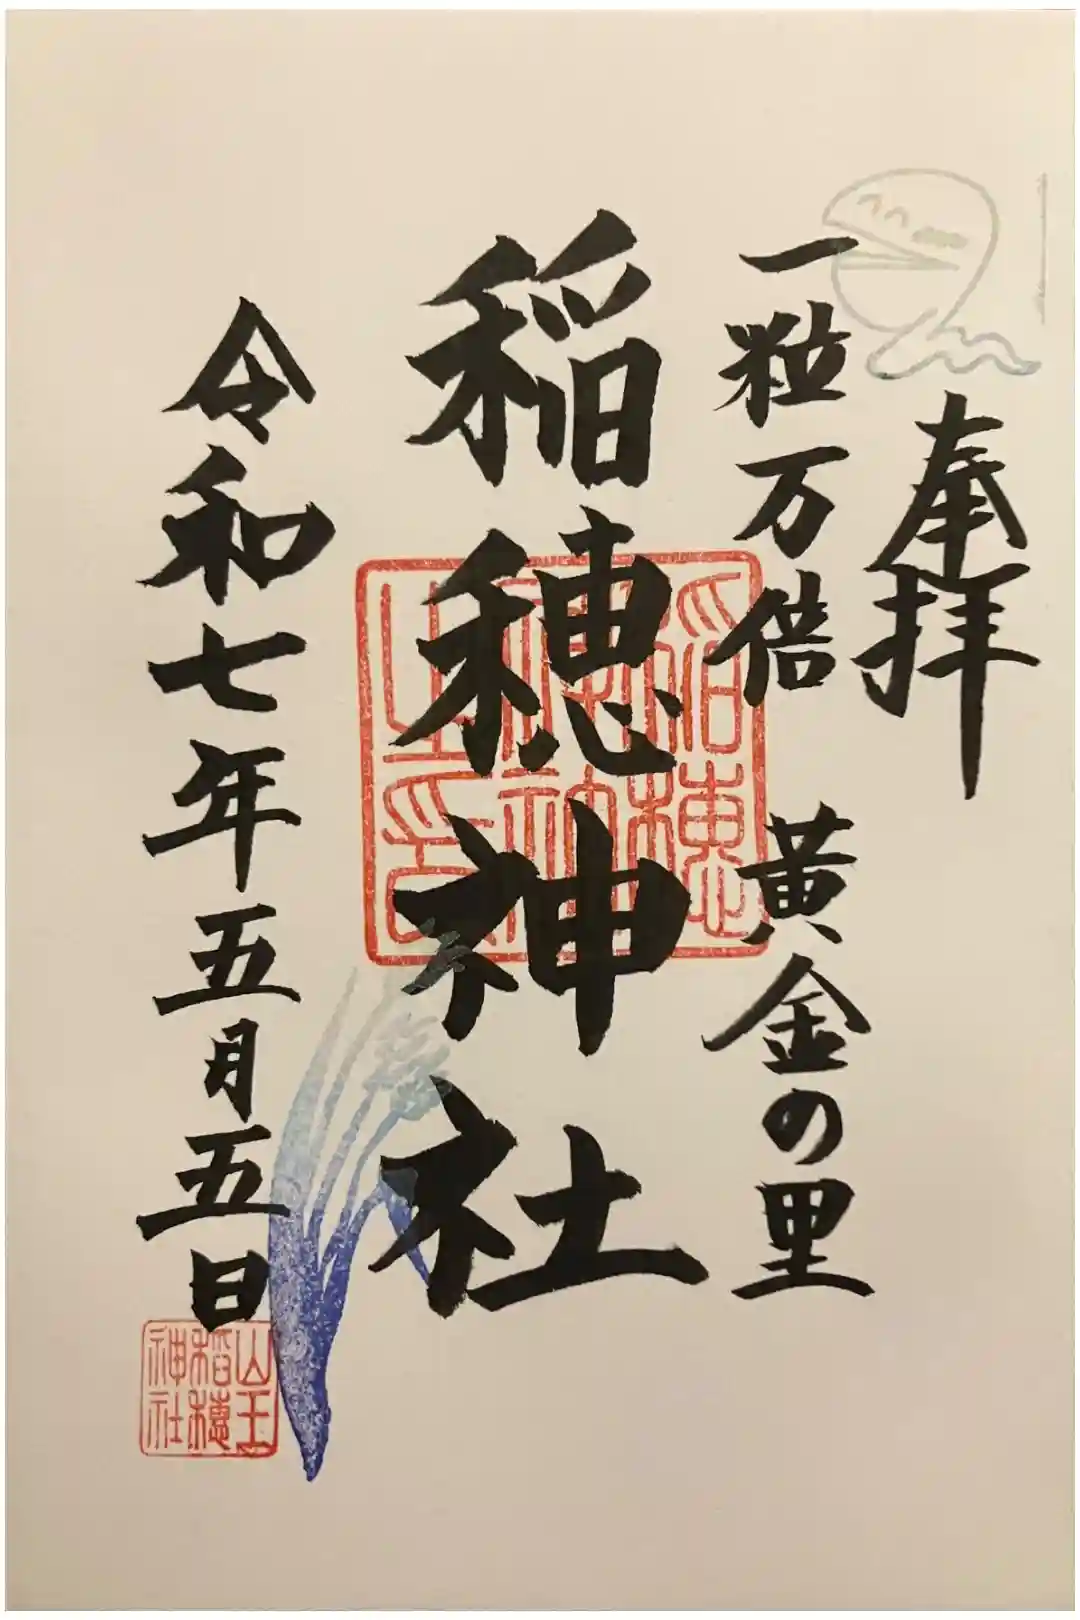 奉拝
一粒万倍 黄金の里
稲穂神社
稲穂神社之印
令和七年五月五日
山王稲穂神社